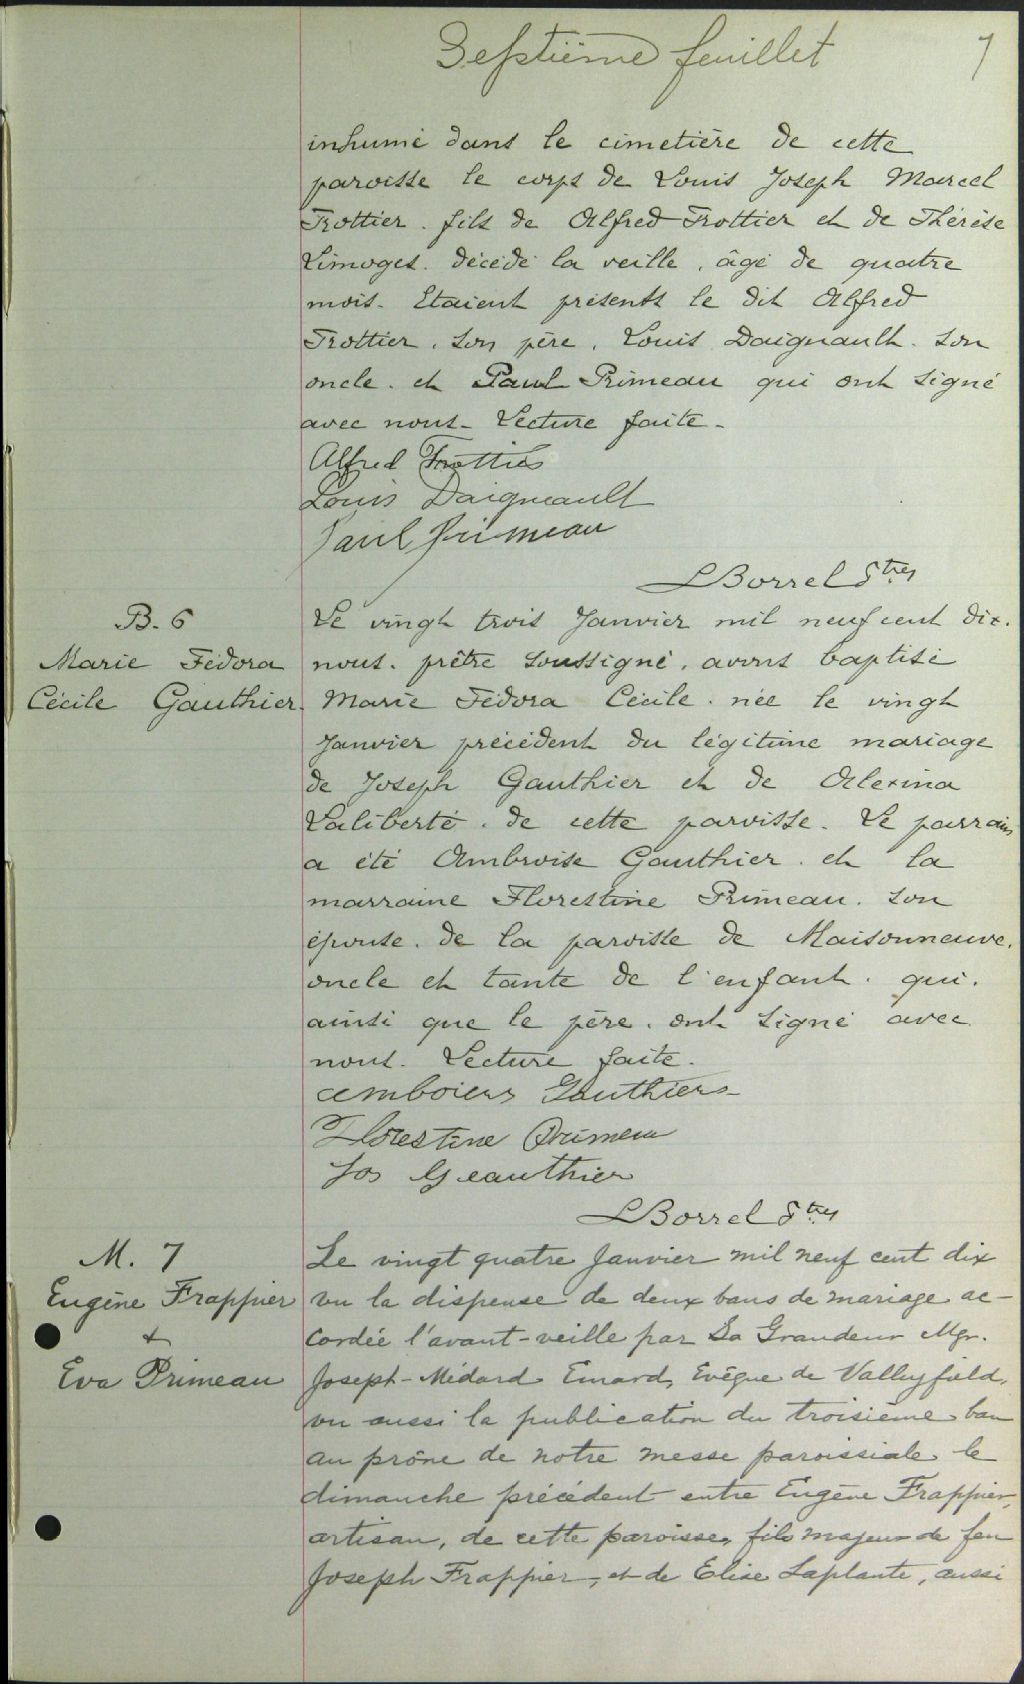 Septième feuillet 7
inhumé dans le cimetière de cette
paroisse le corps de Louis Joseph Marcel
Trottier. fils de Alfred Trottier et de Thérèse
Limoges. décédé la veille, âgé de quatre
mois. Etaient présents le dit Alfred
Trottier, son père, Louis Daignault. son
oncle. et Paul Primeau qui ont signé
avec nous. Lecture faite.
Alfred Trottier
Louis Daigneault
Paul Primeau
LBorrel Ptre
B. 6
Marie Fédora
Cécile Gauthier.
Le vingt trois Janvier mil neuf cent dix.
nous. prêtre soussigné, avons baptisé
Marie Fédora Cécile. née le vingt
Janvier précédent du légitime mariage
de Joseph Gauthier et de Alexina
Laliberté. de cette paroisse. Le parrain
a été Ambroise Gauthier. et la
marraine Florestine Primeau. son
épouse. de la paroisse de Maisonneuve.
oncle et tante de l'enfant. qui.
ainsi que le père. ont signé avec
nous. Lecture faite.
Amboiers Gauthiers
Florestine Primeau
Jos Geauthier
LBorrel Ptre
M. 7
Eugène Frappier
+
Eva Primeau
Le vingt quatre Janvier mil neuf cent dix
vu la dispense de deux bans de mariage ac-
cordée l'avant-veille par Sa Grandeur Mgr.
Joseph-Médard Emard, Evêque de Valleyfield,
vu aussi la publication du troisième ban
au prône de notre messe paroissiale le
dimanche précédent entre Eugène Frappier,
artisan, de cette paroisse, fils majeur de feu
Joseph Frappier, et de Elise Laplante, aussi